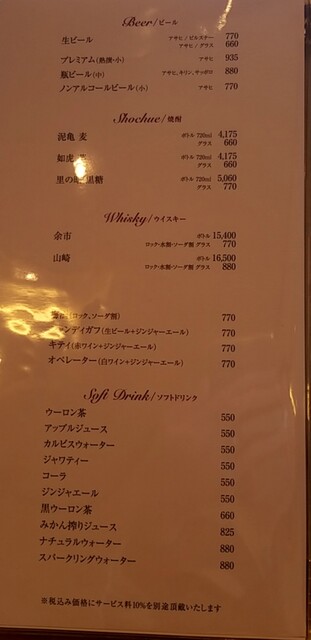 Beer/ビール
生ビール アサヒ / ピルスナー 770
アサヒ / グラス 660
プレミアム(熟撰・小) アサヒ 935
瓶ビール(小) アサヒ、キリン、サッポロ 880
ノンアルコールビール(小) アサヒ 770
Shochue/焼酎
泥亀 麦 ボトル 720ml 4,175
グラス 660
如虎 ボトル 720ml 4,175
グラス 660
里の 黒糖 ボトル 720ml 5,060
グラス 770
Whisky/ウイスキー
余市 ボトル 15,400
ロック・水割・ソーダ割 グラス 770
山崎 ボトル 16,500
ロック・水割・ソーダ割 グラス 880
(ロック、ソーダ割) 770
ンディガフ(生ビール+ジンジャーエール) 770
キティ(赤ワイン+ジンジャーエール) 770
オペレーター(白ワイン+ジンジャーエール) 770
Soft Drink/ソフトドリンク
ウーロン茶 550
アップルジュース 550
カルピスウォーター 550
ジャワティー 550
コーラ 550
ジンジャエール 550
黒ウーロン茶 660
みかん搾りジュース 825
ナチュラルウォーター 880
スパークリングウォーター 880
※税込み価格にサービス料10%を別途頂戴いたします